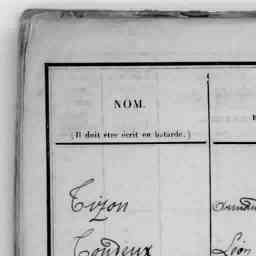 NOM.
(Il doit être écrit en batarde.)
Tizon
Coudeux Léon